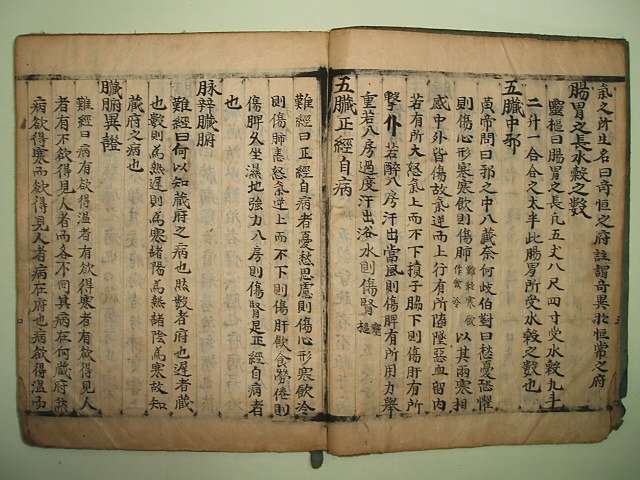 氣之所生名曰奇恒之府註謂奇異於恒常之府
腸胃之長水穀之數
靈樞曰腸胃之長凡五丈八尺四寸受水穀九斗
二升一合合之太半此腸胃所受水穀之數也
五臟中邪
黃帝問曰邪之中人藏奈何歧伯對曰愁憂恐懼
則傷心形寒寒飲則傷肺難經寒飲作飲冷以其兩寒相
感中外皆傷故氣逆而上行有所墮墜惡血留內
若有所大怒氣上而不下積于脇下則傷肝有所
擊仆若醉入房汗出當風則傷脾有所用力擧
重若入房過度汗出浴水則傷腎靈樞
五臟正經自病
難經曰正經自病者憂愁思慮則傷心形寒飲冷
則傷肺恚怒氣逆上而不下則傷肝飮食勞倦則
傷脾久坐濕地強力入房則傷腎是正經自病者
也
脉辨臟腑
難經曰何以知藏府之病也脉數者府也遲者藏
也數則為熱遲則為寒諸陽為熱諸陰為寒故知
藏府之病也
臟腑異證
難經曰病有欲得溫者有欲得寒者有欲得見人
者有不欲得見人者而各不同其病在何藏府然
病欲得寒而欲得見人者病在府也病欲得溫而